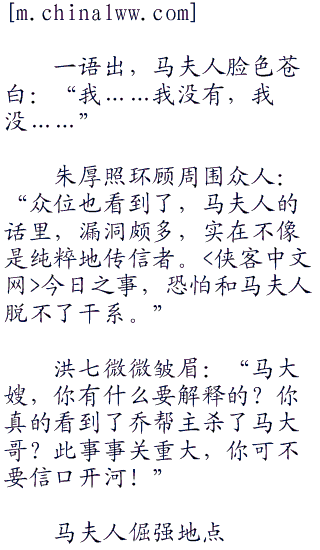 [m.china1ww.com]
一语出，马夫人脸色苍
白：“我……我没有，我
没……”
朱厚照环顾周围众人：
“众位也看到了，马夫人的
话里，漏洞颇多，实在不像
是纯粹地传信者。<侠客中文
网>今日之事，恐怕和马夫人
脱不了干系。”
洪七微微皱眉：“马大
嫂，你有什么要解释的？你
真的看到了乔帮主杀了马大
哥？此事事关重大，你可不
要信口开河！”
马夫人倔强地点